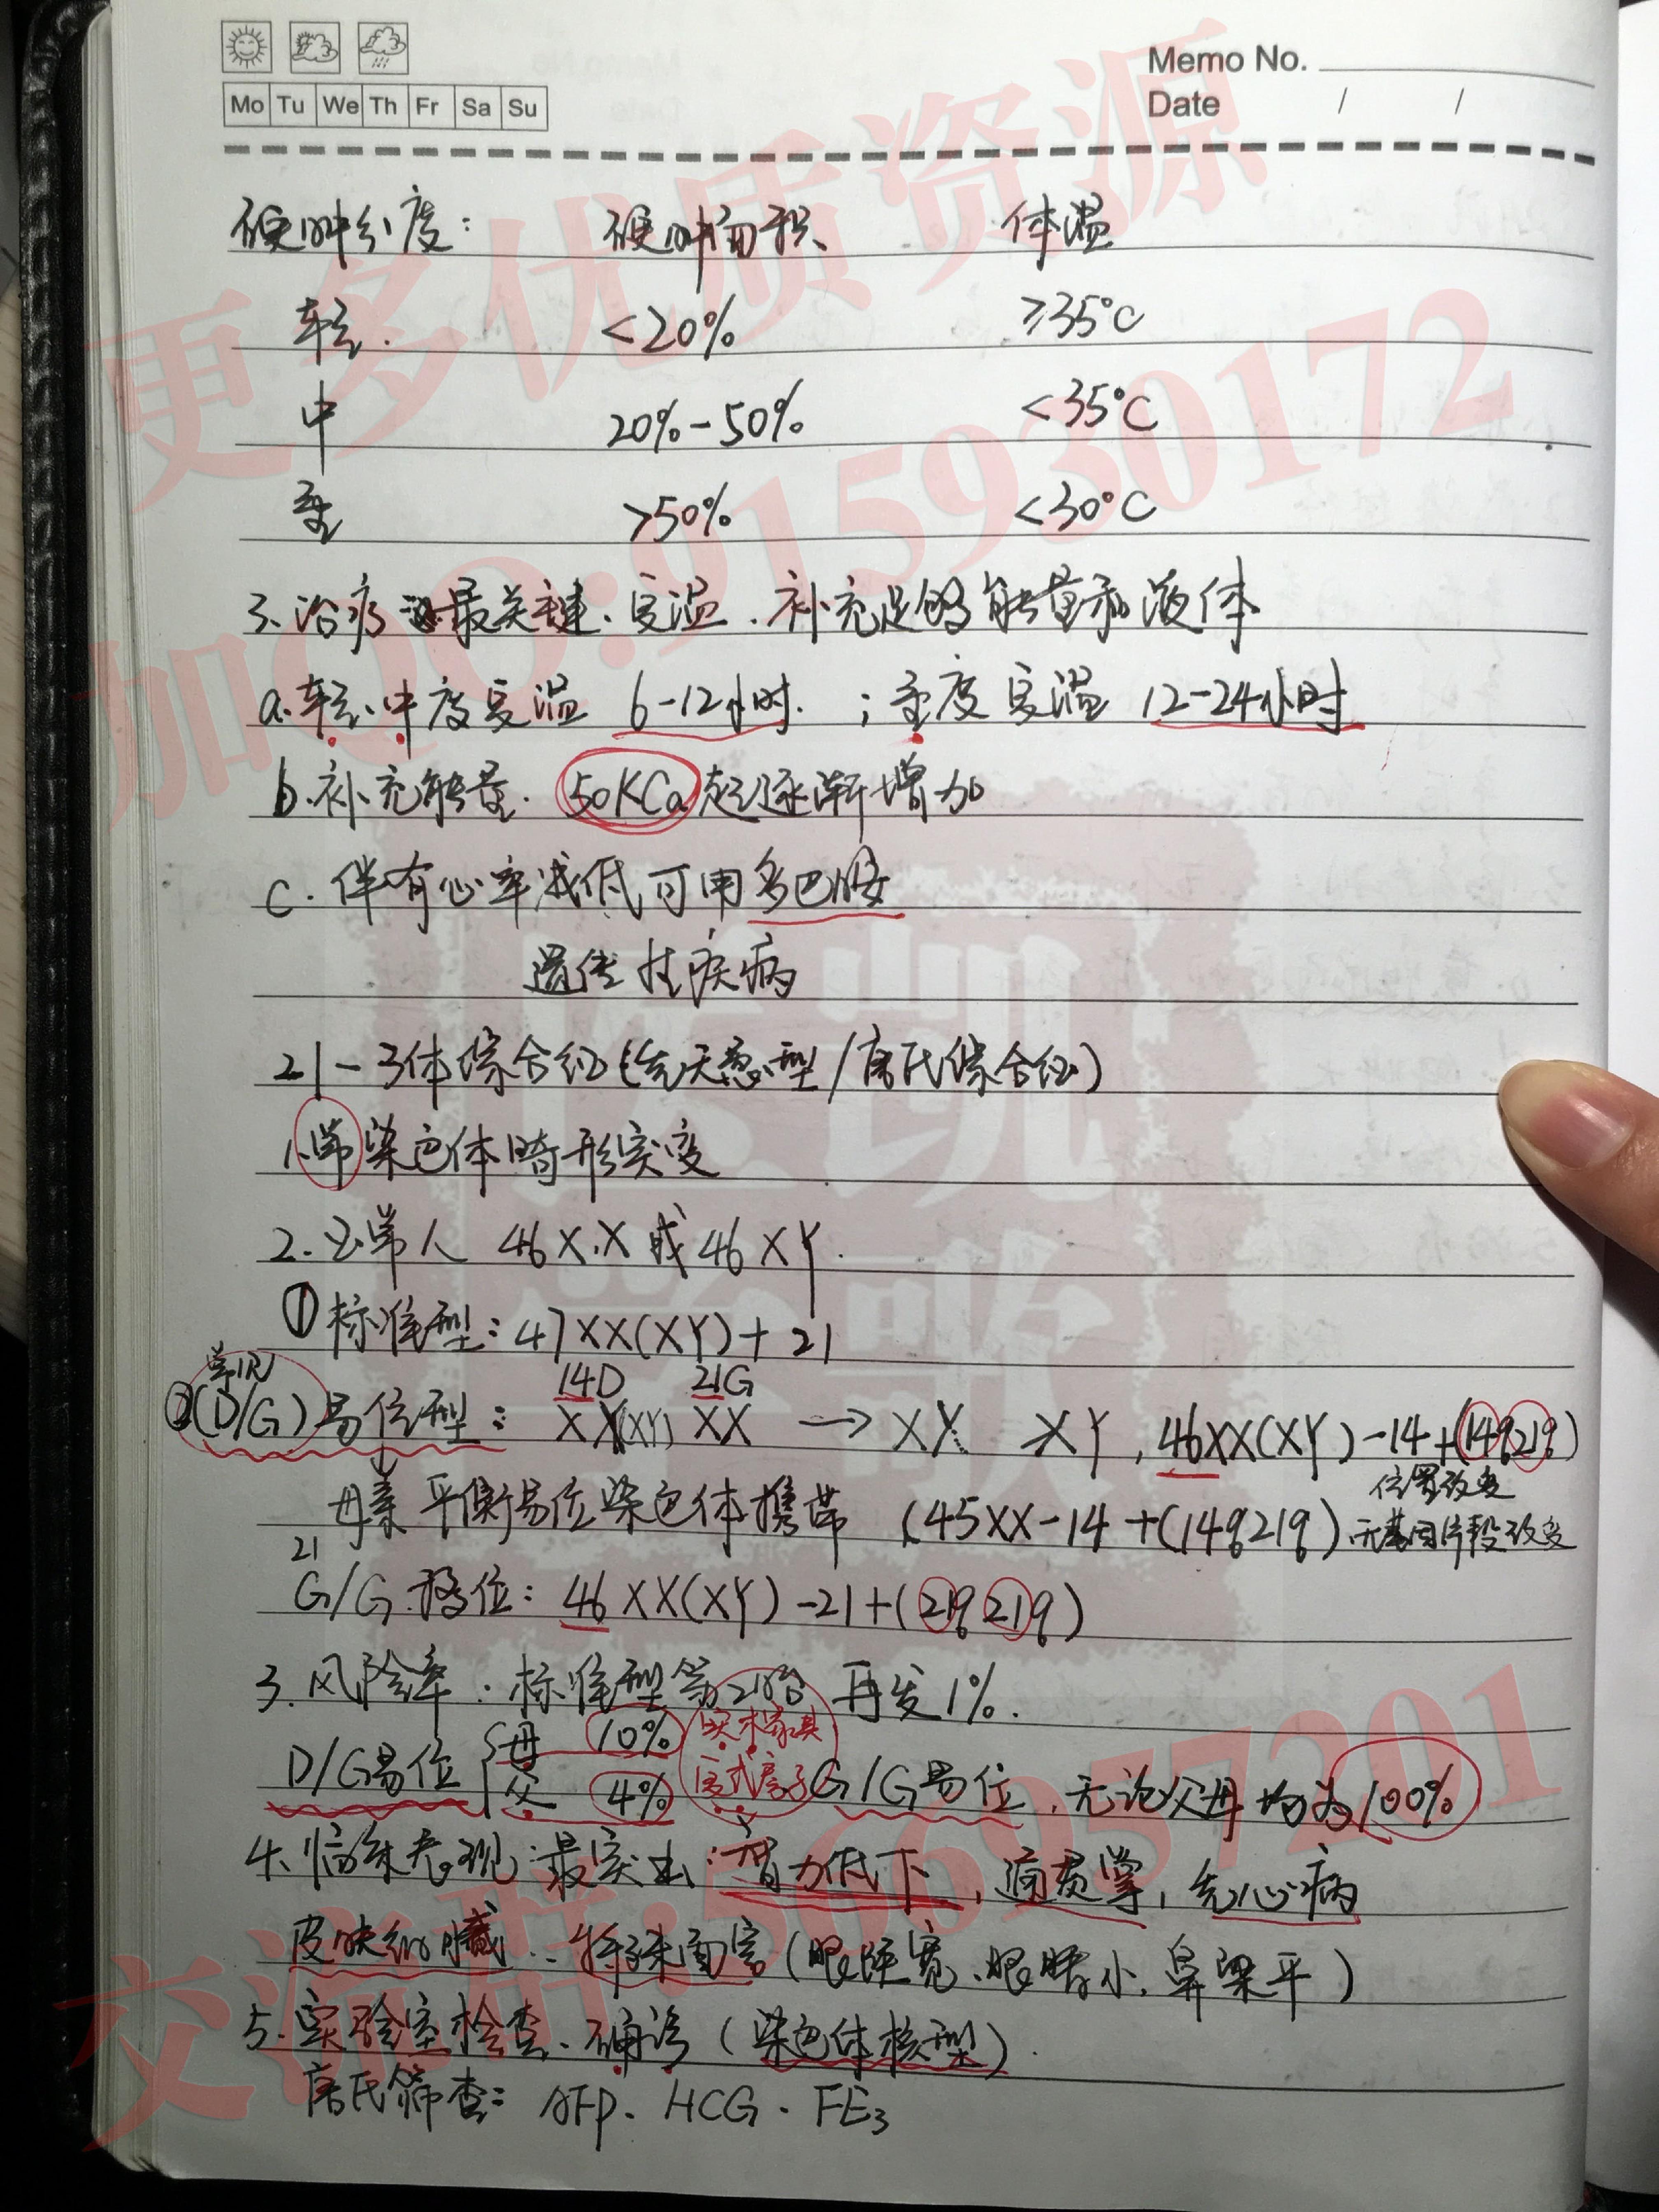 Memo No.
Mo Tu We Th Fr Sa Su
Date / /
硬肿分度: 硬肿面积 体温
轻. <20% ≥35°C
中 20%-50% <35°C
重 >50% <30°C
3.治疗 最关键、复温.补充足够能量和液体
a.轻、中度复温 6-12小时. ;重度复温 12-24小时
b.补充能量. 50KCa起逐渐增加
c.伴有心率减低可用多巴胺
遗传性疾病
21-3体综合征(先天愚型/唐氏综合征)
1.常染色体畸形突变
2.正常人 46X,X或46XY.
①标准型:47XX(XY)+21
14D 21G
②(D/G)易位型: XX(XY) XX → XX XY,46XX(XY)-14+(14q21q)
位置改变
母亲平衡易位染色体携带 (45XX-14+(14q21q)无基因片段改变
21
G/G.移位:46XX(XY)-21+(21q21q)
3.风险率.标准型 再发1%.
D/G易位 母 10% 父 4% 实木家具 G/G易位,无论父母均为100%
4.临床表现:最突出:智力低下,通贯掌,先心病
皮肤细腻、特殊面容(眼距宽、眼睛小.鼻梁平)
5.实验室检查、确诊(染色体核型).
唐氏筛查:AFP.HCG.FE3
更多优质资源
加QQ:915930172
医凯学歌
交流群:566957201